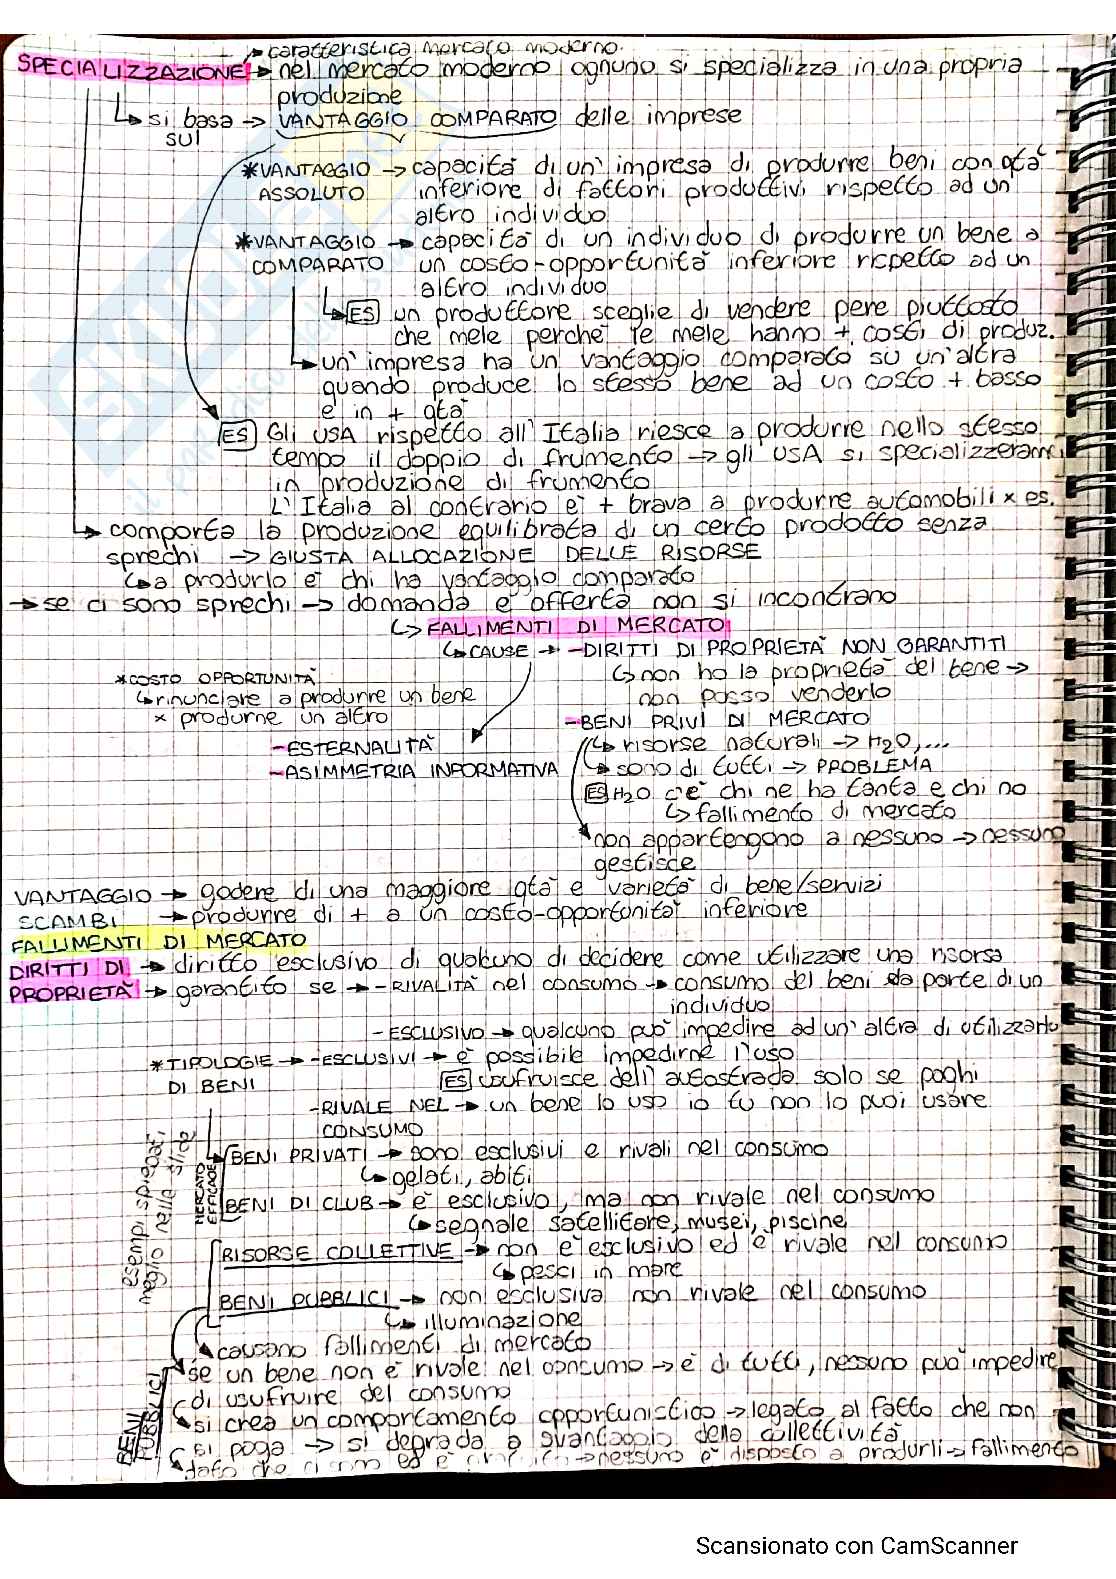 → caratteristica mercato moderno.
SPECIALIZZAZIONE → nel mercato moderno ognuno si specializza in una propria
produzione
↳ si basa → VANTAGGIO COMPARATO delle imprese
sul
*VANTAGGIO → capacità di un'impresa di produrre beni con qtà
ASSOLUTO inferiore di fattori produttivi rispetto ad un
altro individuo
*VANTAGGIO → capacità di un individuo di produrre un bene a
COMPARATO un costo-opportunità inferiore rispetto ad un
altro individuo
↳ ES un produttore sceglie di vendere pere piuttosto
che mele perchè le mele hanno + costi di produz.
↳ un'impresa ha un vantaggio comparato su un'altra
quando produce lo stesso bene ad un costo + basso
e in + qtà
ES Gli USA rispetto all'Italia riesce a produrre nello stesso
tempo il doppio di frumento → gli USA si specializzeranno
in produzione di frumento
L'Italia al contrario è + brava a produrre automobili x es.
→ comporta la produzione equilibrata di un certo prodotto senza
sprechi → GIUSTA ALLOCAZIONE DELLE RISORSE
↳ a produrlo è chi ha vantaggio comparato
→ se ci sono sprechi → domanda e offerta non si incontrano
↳ FALLIMENTI DI MERCATO
↳ CAUSE → - DIRITTI DI PROPRIETÀ NON GARANTITI
↳ non ho la proprietà del bene →
non posso venderlo
*COSTO OPPORTUNITÀ
↳ rinunciare a produrre un bene
x produrne un altro
- BENI PRIVI DI MERCATO
↳ risorse naturali → H2O,...
↳ sono di tutti → PROBLEMA
ES H2O c'è chi ne ha tanta e chi no
↳ fallimento di mercato
non appartengono a nessuno → nessuno
gestisce
- ESTERNALITÀ
- ASIMMETRIA INFORMATIVA
VANTAGGIO → godere di una maggiore qtà e varietà di bene/servizi
SCAMBI → produrre di + a un costo-opportunità inferiore
FALLIMENTI DI MERCATO
DIRITTI DI → diritto esclusivo di qualcuno di decidere come utilizzare una risorsa
PROPRIETÀ → garantito se → - RIVALITÀ nel consumo → consumo del beni da parte di un
individuo
- ESCLUSIVO → qualcuno può impedire ad un'altra di utilizzarlo
*TIPOLOGIE → - ESCLUSIVI → è possibile impedirne l'uso
DI BENI ES usufruisce dell'autostrada solo se paghi
- RIVALE NEL → un bene lo uso io tu non lo puoi usare
CONSUMO
esempi spiegati
meglio nelle slide
MERCATO
EFFICACE
BENI PRIVATI → sono esclusivi e rivali nel consumo
↳ gelati, abiti
BENI DI CLUB → è esclusivo, ma non rivale nel consumo
↳ segnale satellitare, musei, piscine
RISORSE COLLETTIVE → non è esclusivo ed è rivale nel consumo
↳ pesci in mare
BENI PUBBLICI → non esclusiva non rivale nel consumo
↳ illuminazione
causano fallimenti di mercato
BENI
PUBBLICI
se un bene non è rivale nel consumo → è di tutti, nessuno può impedire
di usufruire del consumo
si crea un comportamento opportunistico → legato al fatto che non
si paga → si degrada a svantaggio della collettività
dato che ci sono ed è → nessuno è disposto a produrli → fallimento
Scansionato con CamScanner